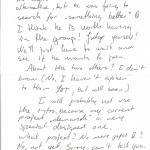 alternative, but he was going to
search for something better. I
think he is worth having
in the group. Judge yourself!
We'll just have to wait and
see if he wants to join.
About the two others? I don't
know. (No, I haven't spoken
to them yet, but will soon)
I will probably not use
the info, because my current
project demands a very
special designed one.
What project? No paper II?
No, not yet. Sorry, can't tell you.